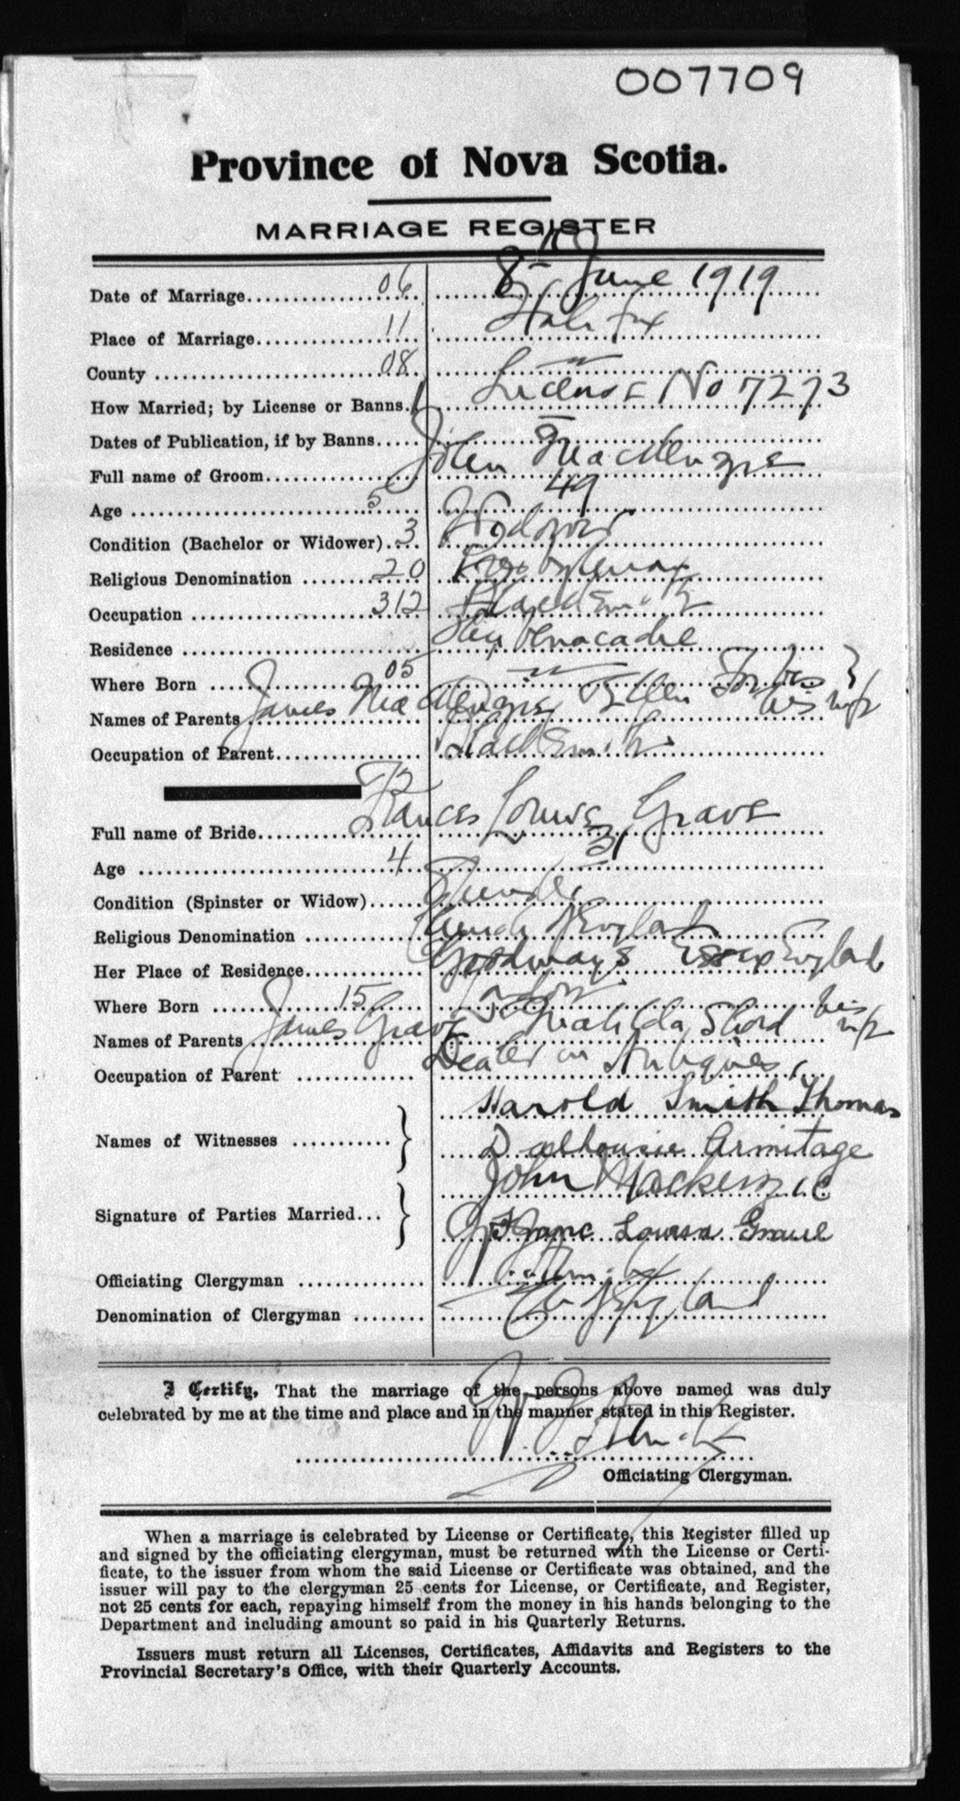 007709
Province of Nova Scotia.
MARRIAGE REGISTER
Date of Marriage 06 8th June 1919
Place of Marriage 11 Halifax
County 08 "
How Married; by License or Banns. License No 7273
Dates of Publication, if by Banns
Full name of Groom John MacKenzie
Age 5 49
Condition (Bachelor or Widower) 3 Widower
Religious Denomination 20 Presbyterian
Occupation 312 Blacksmith
Residence Shubenacadie
Where Born 05 "
Names of Parents James MacKenzie, Ellen Forbes } his wife
Occupation of Parent Blacksmith
Full name of Bride Frances Louise Grave
Age 4 31
Condition (Spinster or Widow)
Religious Denomination Church of England
Her Place of Residence Goodmays Essex England
Where Born 15 London
Names of Parents James Grave Matilda Shord his wife
Occupation of Parent Dealer in Antiques
Names of Witnesses } Harold Smith Thomas
Dalhousie Armitage
Signature of Parties Married... } John Mackenzie
Louisa
Officiating Clergyman
Denomination of Clergyman Ch of England
I Certify, That the marriage of the persons above named was duly
celebrated by me at the time and place and in the manner stated in this Register.
Officiating Clergyman.
When a marriage is celebrated by License or Certificate, this Register filled up
and signed by the officiating clergyman, must be returned with the License or Certi-
ficate, to the issuer from whom the said License or Certificate was obtained, and the
issuer will pay to the clergyman 25 cents for License, or Certificate, and Register,
not 25 cents for each, repaying himself from the money in his hands belonging to the
Department and including amount so paid in his Quarterly Returns.
Issuers must return all Licenses, Certificates, Affidavits and Registers to the
Provincial Secretary's Office, with their Quarterly Accounts.